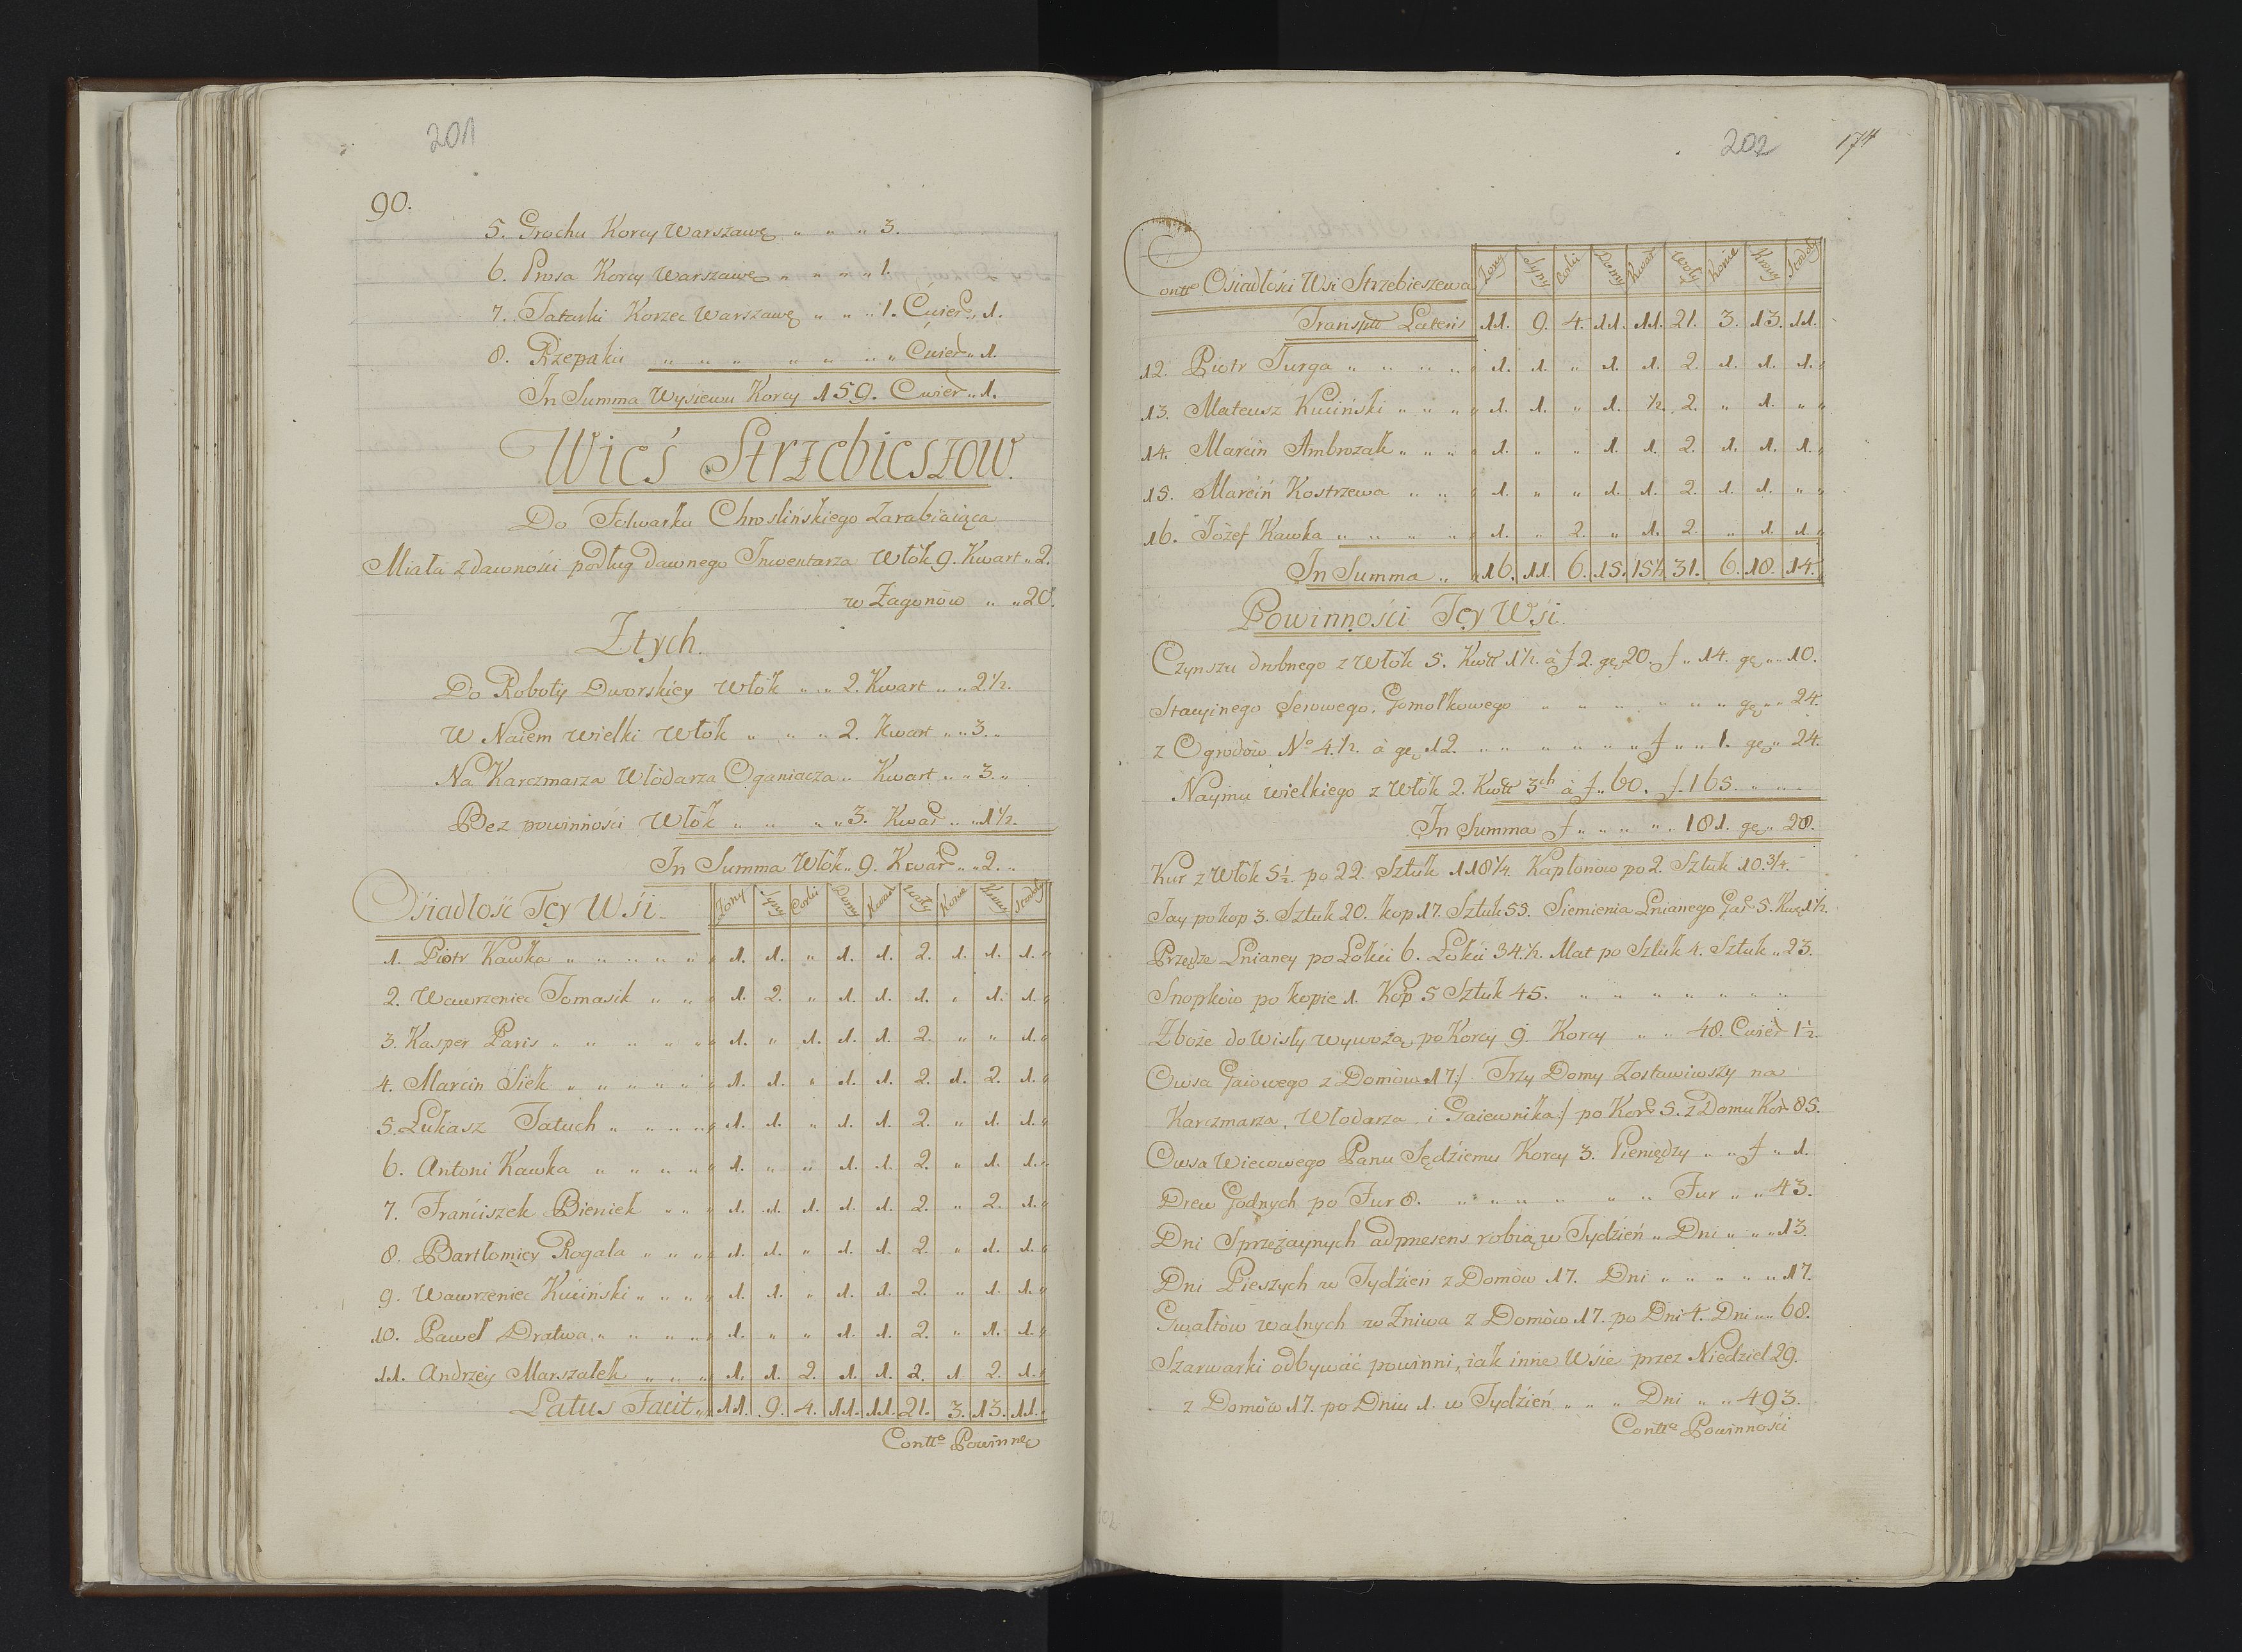 201
90.
5. Grochu Korcy Warszawę „ „ „ 3.
6. Prosa Korcy Warszawę „ „ „ „ 1.
7. Tatarki Korzec Warszawę „ „ „ 1. Cwierć „ 1.
8. Rzepaku „ „ „ „ „ „ „ „ Cwierć „ 1.
In Summa Wysiewu Korcy 159. Cwierć „ 1.
Wieś Strzebieszow.
Do Folwarku Chroslińskiego Zarabiaiąca
Miała zdawności podług dawnego Inwentarza Włók 9. Kwart „ 2.
w Zagonów „ „ 20.
Ztych.
Do Roboty Dworskiey Włók „ „ 2. Kwart „ „ 2½.
W Naiem wielki Włók „ „ „ 2. Kwart „ „ 3. „
Na Karczmarza Włódarza Oganiacza „ Kwart „ „ 3. „
Bez powinności Włók „ „ „ „ 3. Kwar „ „ 1½.
In Summa Włók „ 9. Kwar „ „ 2. „
Osiadłość Tey Wsi Żony Syny Corki Domy Kwart Woły Konie Krowy Stodoły
1. Piotr Kawka „ „ „ „ „ 1. 1. „ 1. 1. 2. 1. 1. 1.
2. Wawrzeniec Tomasik „ „ 1. 2. „ 1. 1. 1. „ 1. 1.
3. Kasper Paris „ „ „ „ „ 1. „ 1. 1. 1. 2. „ „ 1.
4. Marcin Siek „ „ „ „ „ 1. 1. „ 1. 1. 2. 1. 2. 1.
5. Łukasz Tatuch „ „ „ „ 1. 1. „ 1. 1. 2. „ 1. 1.
6. Antoni Kawka „ „ „ „ 1. „ „ 1. 1. 2. „ 1. 1.
7. Franciszek Bieniek „ „ „ 1. 1. 1. 1. 1. 2. „ 2. 1.
8. Bartłomiey Rogala „ „ „ 1. 1. „ 1. 1. 2. „ 1. 1.
9. Wawrzeniec Kuciński „ „ „ 1. 1. „ 1. 1. 2. „ 1. 1.
10. Paweł Dratwa „ „ „ „ 1. „ „ 1. 1. 2. „ 1. 1.
11. Andrzey Marszałek „ „ „ 1. 1. 2. 1. 1. 2. 1 2. 1.
Latus Facit „ 11. 9. 4. 11. 11. 21. 3. 13. 11.
Contte Powinnę
202
174
Contte Osiadłości Wsi Strzebieszewa Żony Syny Corki Domy Kwart Woły Konie Krowy Stodoły
Transptt Lateris 11. 9. 4. 11. 11. 21. 3. 13. 11.
12. Piotr Turga „ „ „ „ 1. 1. „ 1. 1. 2. 1. 1. 1.
13. Mateusz Kuciński „ „ „ 1. 1. „ 1. ½. 2. „ 1. „
14. Marcin Ambrozak „ „ „ 1. „ „ 1. 1. 2. 1. 1. 1.
15. Marcin Kostrzewa „ „ 1. „ „ 1. 1. 2. 1. 1. „
16. Józef Kawka „ „ „ „ 1. „ 2. „ 1. 2. „ 1. 1.
In Summa „ 16. 11. 6. 15. 15½ 31. 6. 18. 14.
Powinności Tey Wsi
Czynszu drobnego z Włók 5. Kwtt 1½. à f 2. gę 20. f „ 14. gę „ „ 10.
Stacyinego Serowego, Gomołkowego „ „ „ „ „ „ gę „ „ 24.
z Ogrodów No 4.½. à gę 12. „ „ „ „ „ „ f „ „ 1. gę „ 24.
Naymu wielkiego z Włók 2. Kwtt 3ch à f „ 60. f. 165. „ „
In Summa f „ „ „ „ „ 181. gę „ 28.
Kur z Włók 5½. po 22. Sztuk 118¼. Kapłonow po 2. Sztuk 10.¾.
Jay po kop 3. Sztuk 20. kop 17. Sztuk 55. Siemienia Lnianego Gar 5. Kwę 1½.
Przędze Lnianey po Łokci 6. Łokci 34.½. Mat po Sztuk 4. Sztuk „ 23.
Snopków po kopie 1. Kop 5 Sztuk 45. „ „ „ „ „ „ „
Zboże do Wisły wywożą po Korcy 9. Korcy „ „ 48. Cwierć 1½.
Owsa Gaiowego z Domów 17:/ Trzy Domy Zostawiwszy na
Karczmarza, Włodarza i Gaiewnika:/ po Kor 5. z Domu Kor 85.
Owsa Wiecowego Panu Sędziemu Korcy 3. Pieniędzy „ „ f „ 1.
Drew Godnych po Fur 8. „ „ „ „ „ „ „ Fur „ „ 43.
Dni Sprzężaynych adpraesens robią w Tydzień „ Dni „ „ „ 13.
Dni Pieszych w Tydzień z Domów 17. Dni „ „ „ „ „ 17.
Gwałtów walnych w Żniwa z Domów 17. po Dni 4. Dni „ „ 68.
Szarwarki odbywać powinni, iak inne Wsie przez Niedziel 29.
z Domów 17. po Dniu 1. w Tydzień „ „ „ Dni „ „ 493.
Contte Powinności